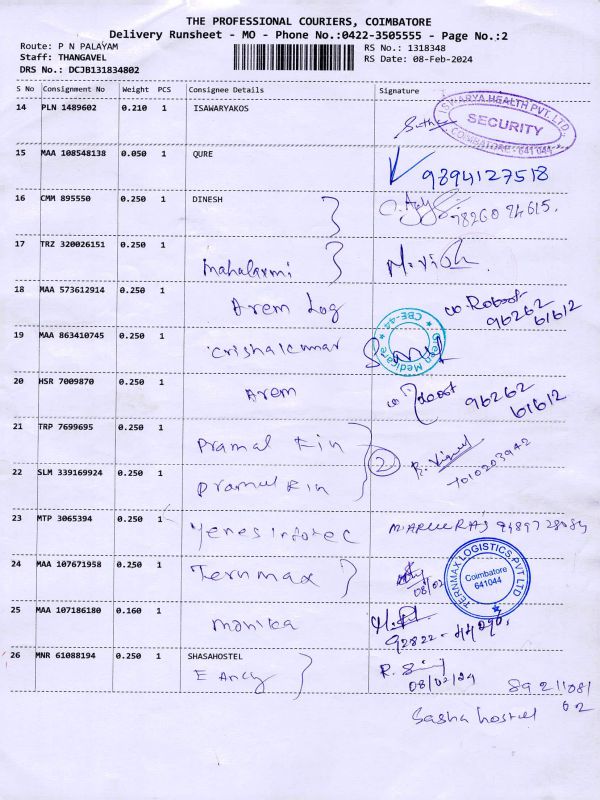 THE PROFESSIONAL COURIERS, COIMBATORE
Delivery Runsheet - MO - Phone No.:0422-3505555 - Page No.:2
Route: P N PALAYAM
RS No.: 1318348
Staff: THANGAVEL
RS Date: 08-Feb-2024
DRS No.: DCJB131834802
S No Consignment No Weight PCS Consignee Details Signature
14 PLN 1489602 0.210 1 ISAWARYAKOS
ISWARYA HEALTH PVT. LTD
SECURITY
COIMBATORE - 641 044
15 MAA 108548138 0.050 1 QURE
9894127518
16 CMM 895550 0.250 1 DINESH
78260 94615.
17 TRZ 320026151 0.250 1 mahalaxmi
18 MAA 573612914 0.250 1 Arem Log
96262
61612
19 MAA 863410745 0.250 1 Crishakumar
Green Medicare
CBE-44
20 HSR 7009870 0.250 1 Arem
96262
61612
21 TRP 7699695 0.250 1 Pramal Kin
2
7010203942
22 SLM 339169924 0.250 1 Pramul Kin
23 MTP 3065394 0.250 1 Yenes infotec
24 MAA 107671958 0.250 1 Ternmax
08/02
TERNMAX LOGISTICS PVT LTD
Coimbatore
641044
25 MAA 107186180 0.160 1 monika
26 MNR 61088194 0.250 1 SHASAHOSTEL
E Ancy
08/02/24
89211081
62
Sasha hostel